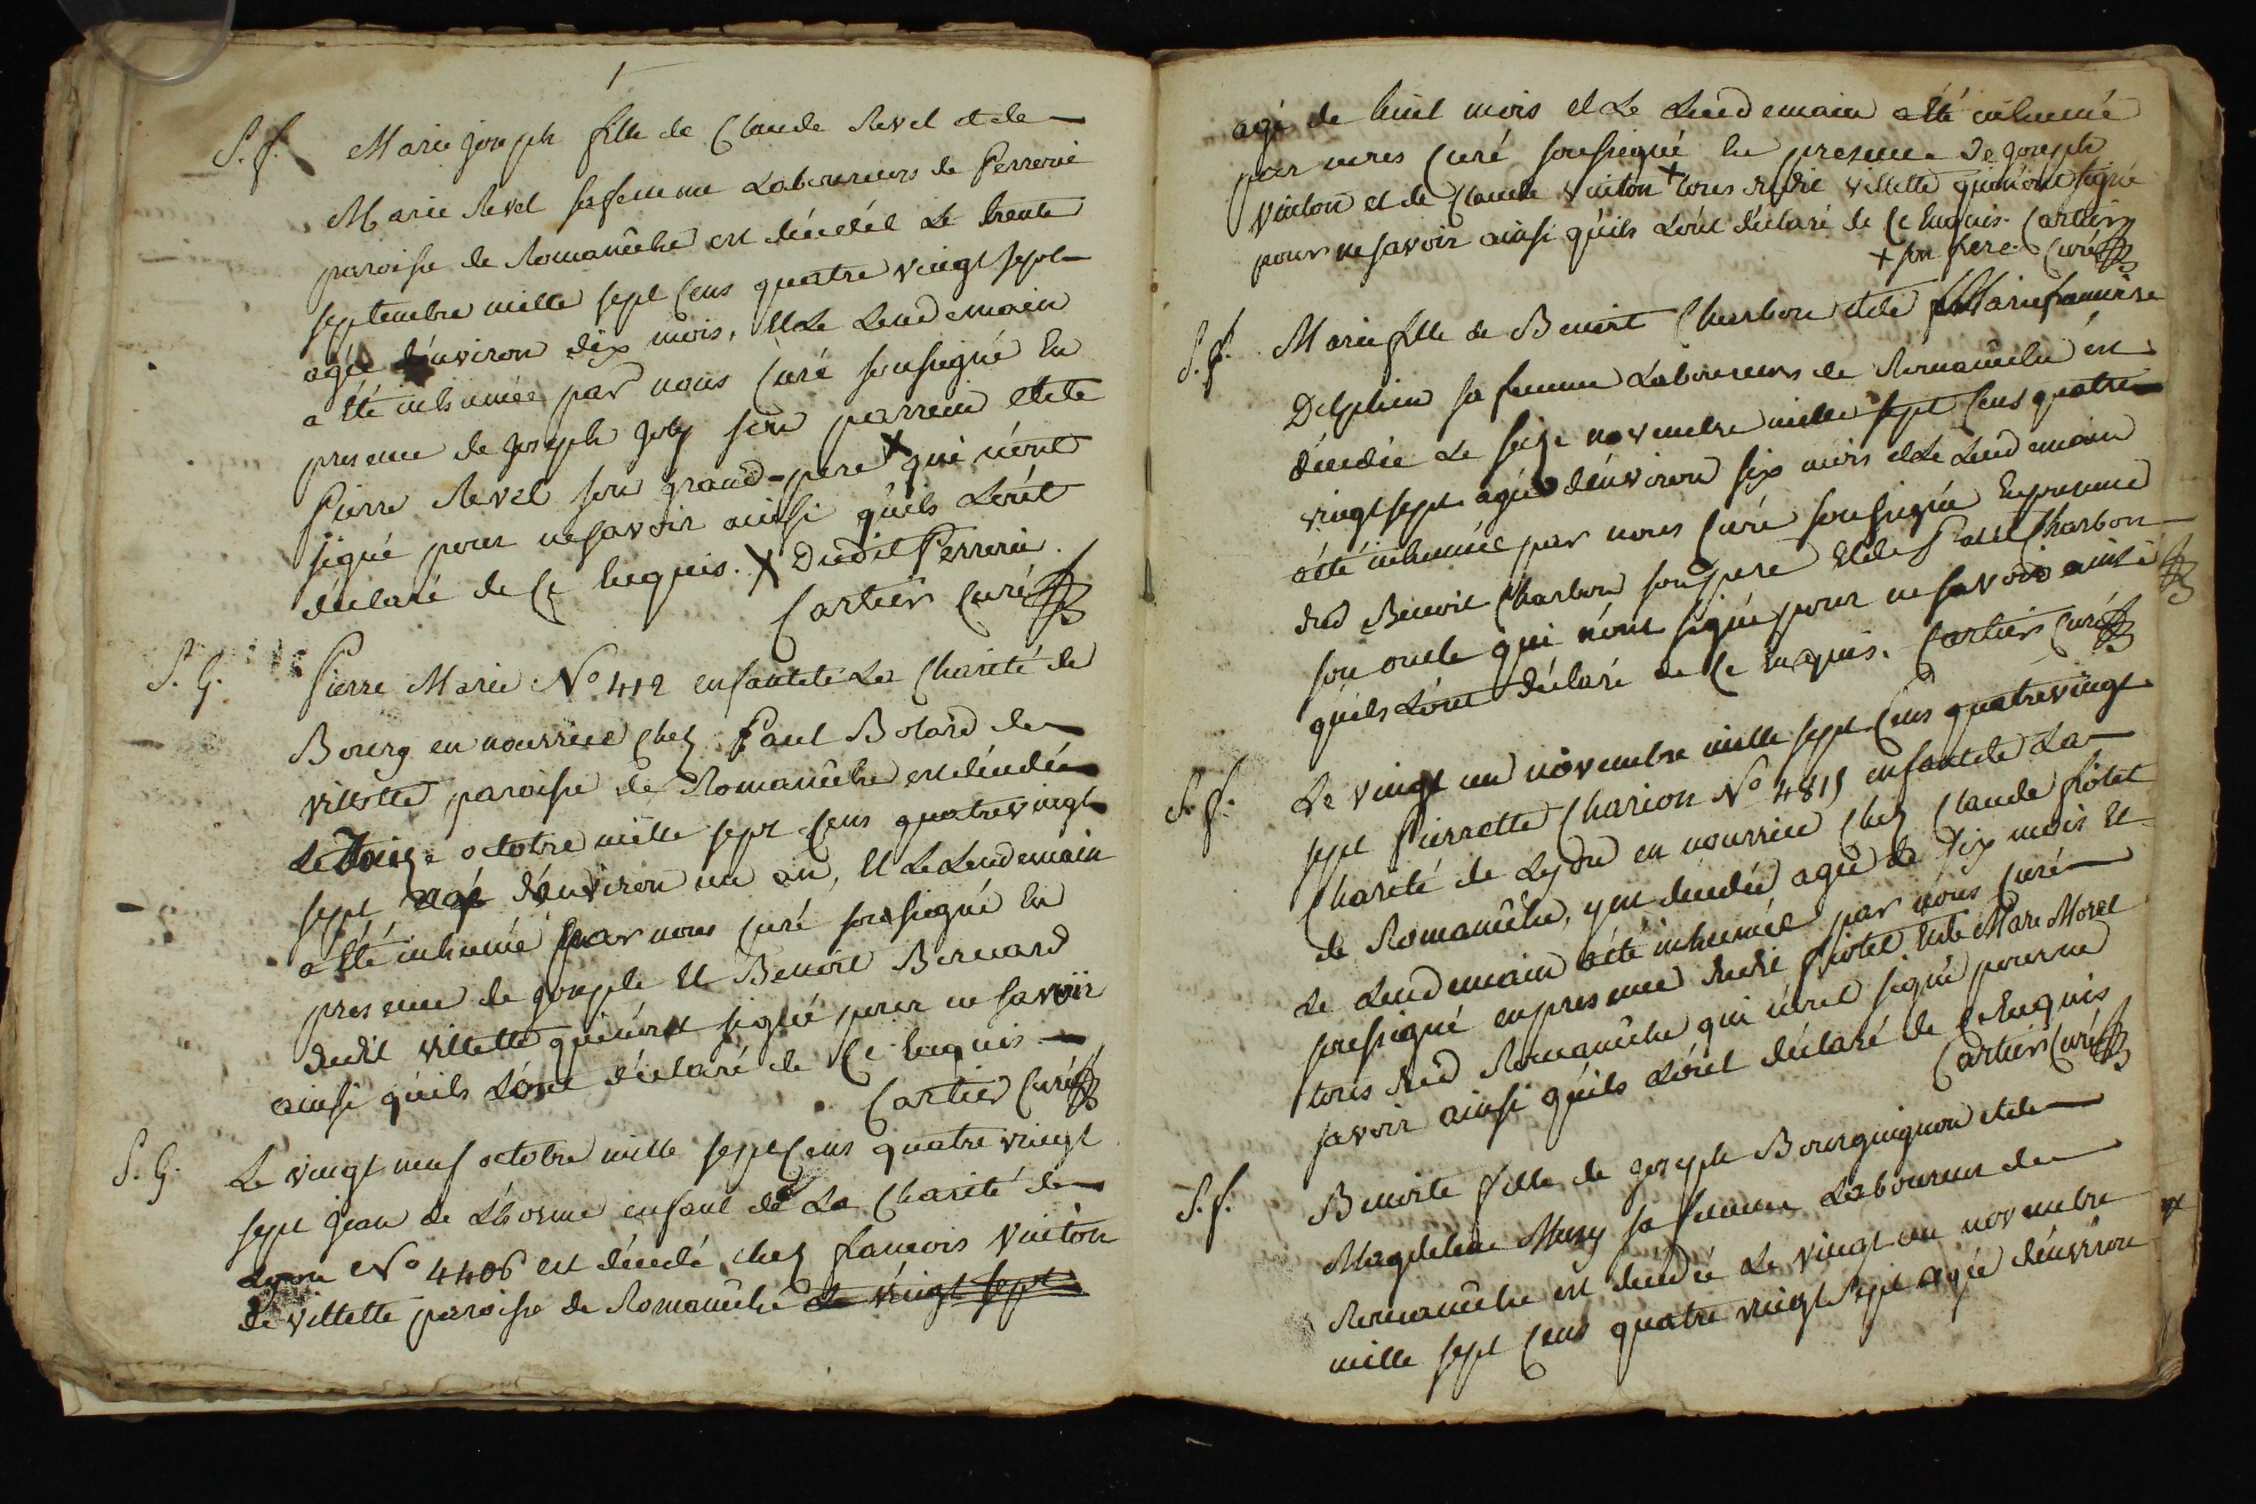 S. f. Marie joseph fille de Claude Revel et de
Marie Revel sa femme Laboureurs de Perrerie
paroisse de Romanêche est décédée Le trente
septembre mille sept Cens quatre vingt sept
agée d'environ dix mois, Et Le Lendemain
a été inhumée par nous Curé soussigné En
presence de joseph joly son parrein et de
Pierre Revel son grand-pere X qui n'ont
signé pour ne savoir ainsi qu'ils L'ont
déclaré de Ce Enquis. X Dudit Perrerie.
Cartier Curé
S. G. Pierre Marie No 412 enfant de La Charité de
Bourg en nourrice Chez Paul Bolard de
villette, paroisse de Romanêche est décédé
Le octobre mille sept Cens quatre vingt
sept agé d'environ un an, Et Le Lendemain
a été inhumé par nous Curé soussigné En
presence de joseph Et Benoit Bernard
dudit villette qui n'ont signé pour ne savoir
ainsi qu'ils L'ont déclaré de Ce Enquis
Cartier Curé
S. G. Le vingt neuf octobre mille sept Cens quatre vingt
sept jean de L'horme enfant de La Charité de
Lyon No 4406 est décédé chez francois Vuiton
de villette paroisse de Romanêche Le vingt sept
agé de huit mois et Le Lendemain a été inhumé
par nous Curé soussigné En presence de joseph
Vuiton et de Claude Vuiton X tous dudit villette qui n'ont signé
pour ne savoir ainsi qu'ils L'ont déclaré de Ce Enquis. Cartier
X son frere. Curé
S. f. Marie fille de Benoit Charbon et de Marie francoise
Delphin sa femme Laboureurs de Romanêche est
décédée Le seize novembre mille sept Cens quatre
vingt sept agée d'environ six mois et Le Lendemain
a été inhumée par nous Curé soussigné En presence
dud Benoit Charbon son pere Et de Charbon
son oncle qui n'ont signé pour ne savoir ainsi
qu'ils L'ont déclaré de Ce Enquis. Cartier Curé
S. f. Le vingt un novembre mille sept Cens quatre vingt
sept Pierrette Charion No 4815 enfant de La
Charité de Lyon en nourrice Chez Claude fiolet
de Romanêche, y est décédée agée de dix mois Et
Le Lendemain a été inhumée par nous Curé
soussigné en presence dudit fiolet Et de Marc Morel
tous dud Romanêche qui n'ont signé pour ne
savoir ainsi qu'ils L'ont déclaré de Ce Enquis
Cartier Curé
S. f. Benoite fille de joseph Bourguignon et de
Magdeleine Musy sa femme Laboureur de
Romanêche est décédée Le vingt un novembre
mille sept Cens quatre vingt sept agée d'environ